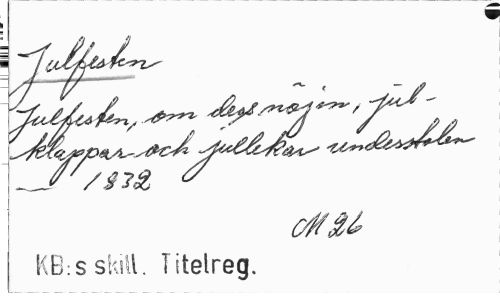 Julfesten
Julfesten, om dess nöjen, jul-
klappar och jullekar
— 1832
M 26
KB:s skill. Titelreg.